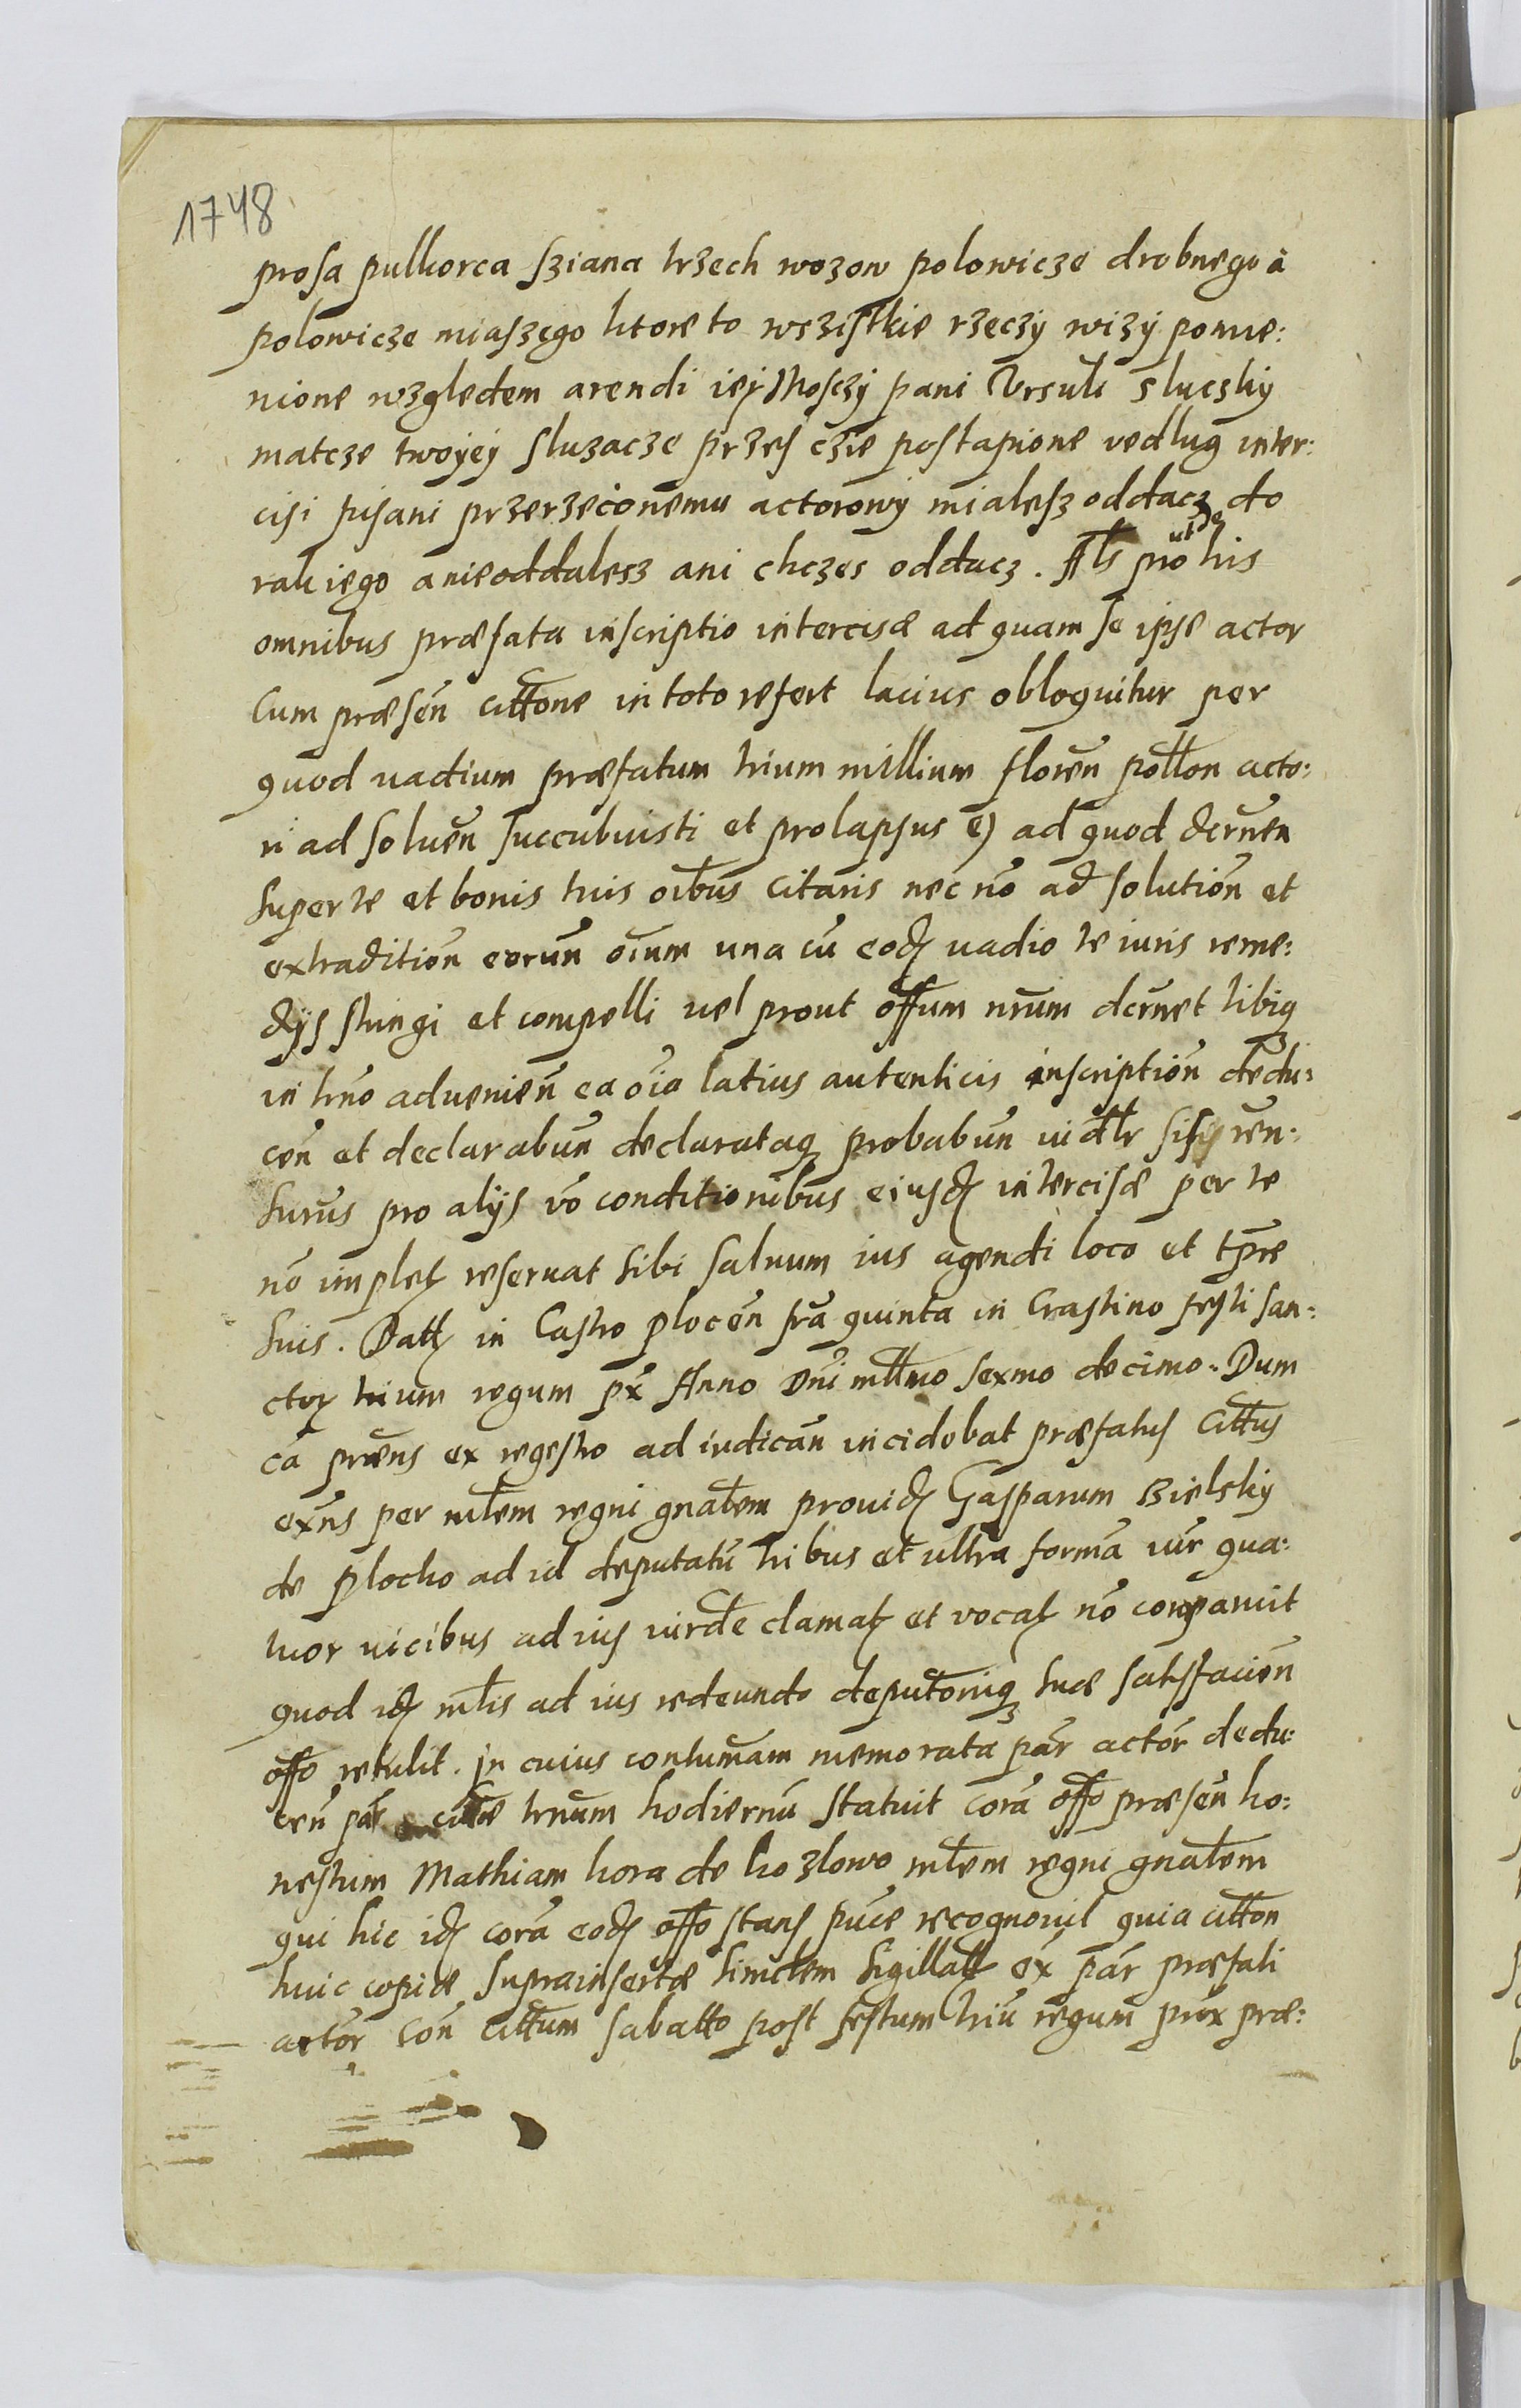 1748
prosa pulkorca sziana trzech wozow polowicze drobnego a
polowicze miąszego ktore to wszistkie rzeczÿ wizÿ pomie:
nione względem arendi ieÿ Mosczÿ pani Ursuli Sluczkiÿ
matcze twoÿeÿ sluzacze przes czie postapione vedlug inter:
cisi pisani przerzeconemu actorowÿ mialesz oddacz do
rak iego a nie oddalesz ani chczes oddacz. Als ꝓut de his
omnibus præfata inscriptio intercisæ ad quam se ipse actor
Cum præsen̄ citt̄one in toto refert lacius obloquitur per
quod uadium præfatum trium millium floren̄ poll̄on acto:
ri ad soluen̄ succubuisti et prolapsus eꝭ ad quod dcernen̄
super te et bonis tuis oībus citaris nec nō ad solution̄ et
extradition̄ eorum oīum una cū eodꝭ uadio te iuris reme:
dÿs stringi et compelli uel prout offum nrūm dcernet tibiqꝫ
in trn̄o aduenien̄ ea oīa latius autenticis inscription̄ dedu:
cen̄ et declarabun̄ declarataqꝫ probabun̄ uidltr sis rn̄:
surus pro alÿs vō conditionibus eiusdꝭ intercisæ per te
nō impletꝭ reseruat sibi saluum ius agendi loco et tp̄re
suis. Dattꝭ in Castro plocen̄ fr̄a quinta in Crastino festi san:
ctorꝭ trium regum px̄ Anno Dn̄i mllmo sexmo decimo. Dum
cā præn̄s ex regestro ad iudican̄ incidebat præfatus Citt̄us
exn̄s per mlem regni gnalem prouidꝭ Gasparum Bielskiÿ
de plocko ad id deputatū tribus et ultra formā iur̄ qua:
tuor uicibus ad ius iurde clamatꝭ et vocatꝭ nō comparuit
quod idꝭ mlis ad ius redeundo deputoniqꝫ suæ satisfacien̄
offo retulit. In cuius contumam memorata par̄ actor̄ dedu:
cen̄ par̄ citt̄æ trn̄um hodiernū statuit corā offo præsen̄ ho:
nestum Mathiam kora de kozlowo mlem regni gnalem
qui hic idꝭ corā eodꝭ offo stans puce recognouit quia citt̄on
huic copiæ suprainsertæ simclem sigillatt ex par̄ præfati
actor̄ con̄ citt̄um sabatto post festum triū regum prox præ: